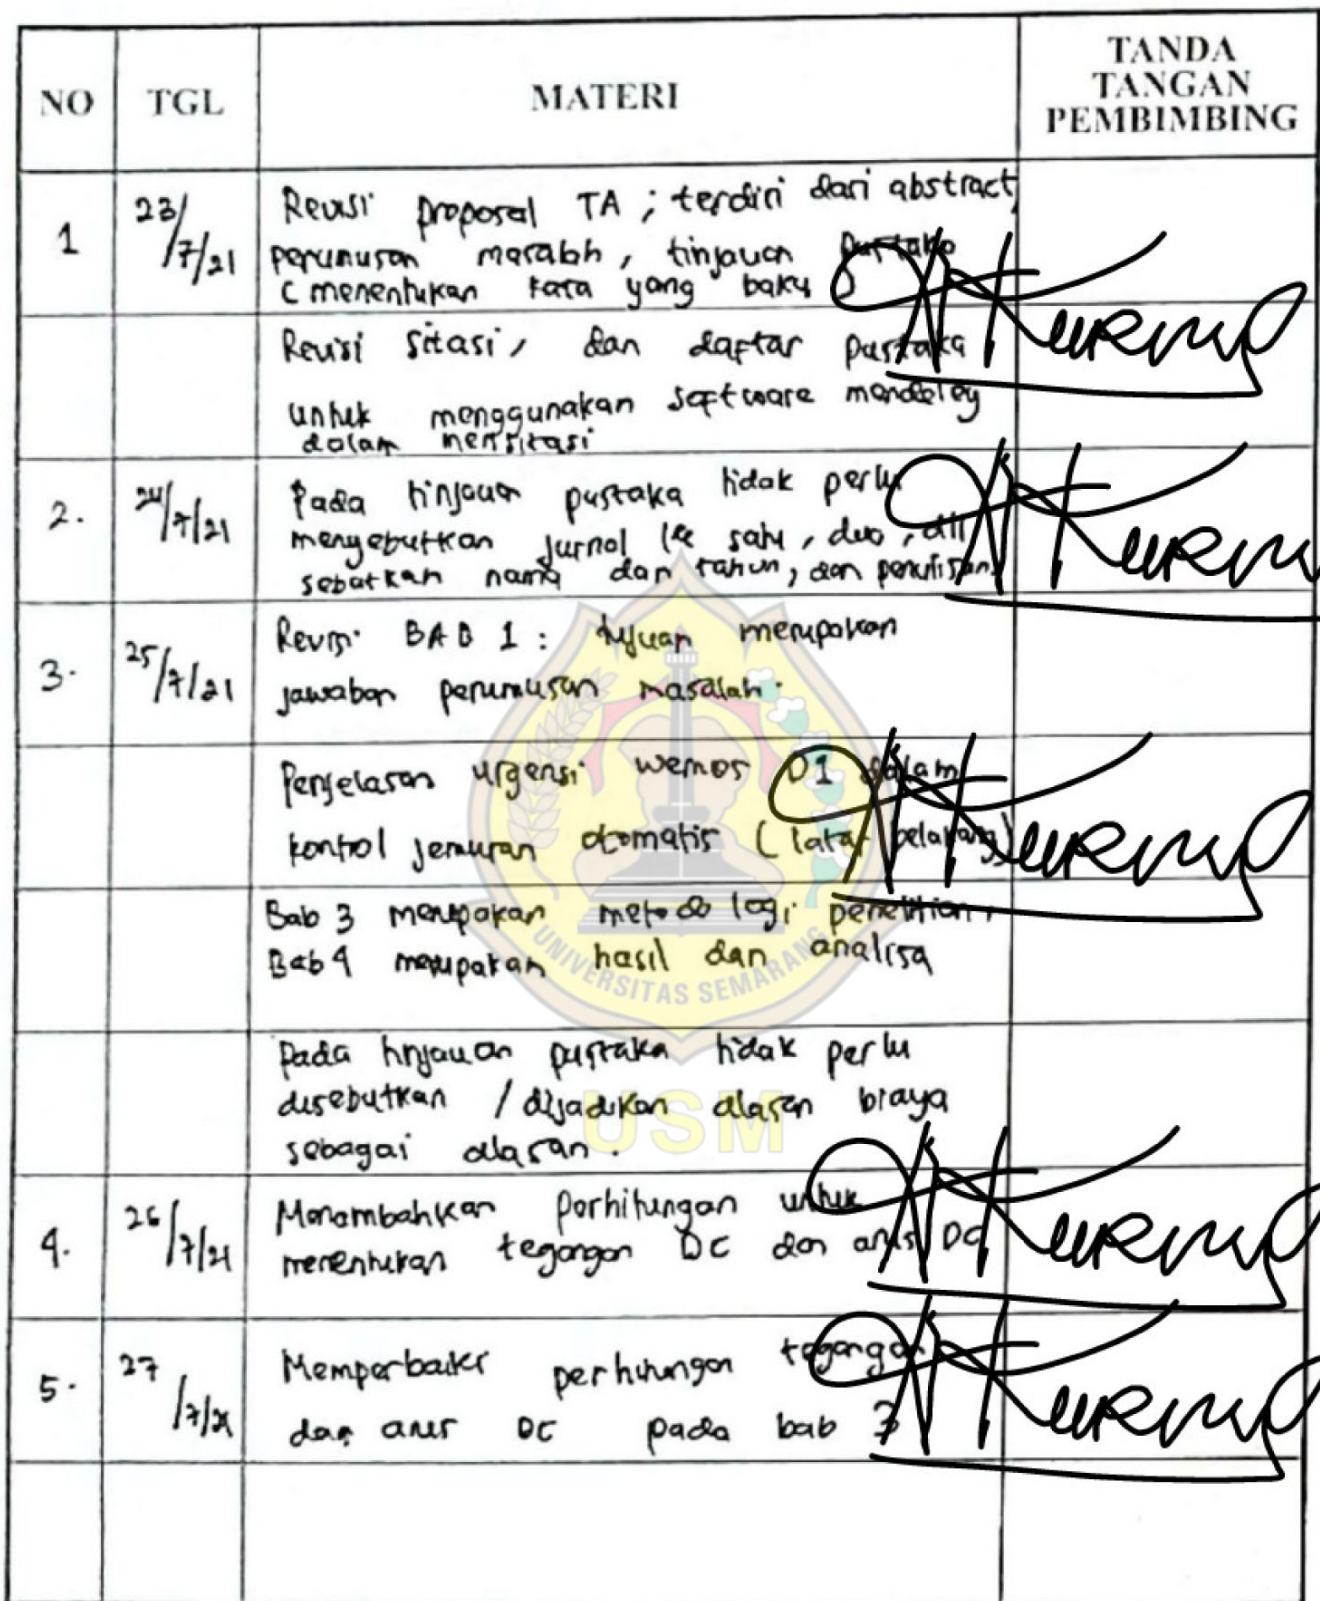 NO TGL MATERI TANDA TANGAN PEMBIMBING
1 23/7/21 Revisi proposal TA ; terdiri dari abstract,
perumusan masalah, tinjauan pustaka
( menentukan kata yang baku )
Revisi sitasi, dan daftar pustaka
untuk menggunakan software mendeley
dalam mensitasi
2. 24/7/21 Pada tinjauan pustaka tidak perlu
menyebutkan jurnal ke satu, dua, dll
sebutkan nama dan tahun, dan penulisan
3. 25/7/21 Revisi BAB 1 : tujuan merupakan
jawaban perumusan masalah.
Penjelasan urgensi wemos D1 dalam
kontrol jemuran otomatis ( latar belakang )
Bab 3 merupakan metodologi penelitian,
Bab 4 merupakan hasil dan analisa
Pada tinjauan pustaka tidak perlu
disebutkan / dijadikan alasan biaya
sebagai alasan.
4. 26/7/21 Menambahkan perhitungan untuk
menentukan tegangan DC dan arus DC
5. 27/7/21 Memperbaiki perhitungan tegangan
dan arus DC pada bab 3
UNIVERSITAS SEMARANG
USM